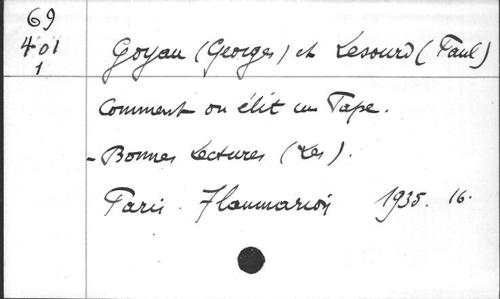 69
401
1
Goyau (Georges) et Lesourd (Paul)
Comment on élit un Pape.
- Bonnes Lectures (Les).
Paris. Flammarion 1935. 16.